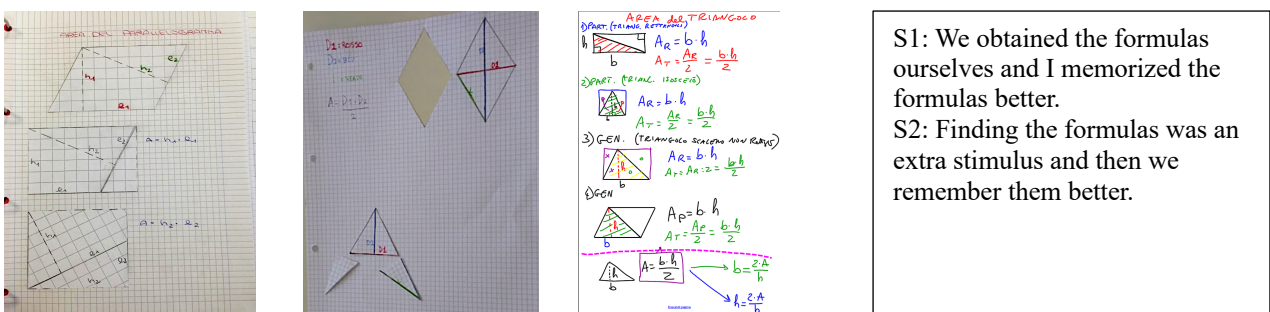 AREA DEL PARALLELOGRAMMA
h1
h2
l2
l1
h1
h2
l2
l1
A = h1 · l1
h1
l1
l2
h2
A = h2 · l2
D1: ROSSO
A = D1 · D2
2
D1
D2
D1
AREA del TRIANGOLO
1) PART. (TRIANG. RETTANGOLI)
h
b
AR = b · h
AT = AR/2 = b·h/2
2) PART. (TRIANG. ISOSCELE)
AR = b · h
AT = AR/2 = b·h/2
3) GEN. (TRIANGOLO SCALENO NON RETT.)
h
b
AR = b · h
AT = AR : 2 = b·h/2
4) GEN
h
b
AP = b · h
AT = AP/2 = b·h/2
h
b
A = b·h/2
b = 2·A/h
h = 2·A/b
S1: We obtained the formulas
ourselves and I memorized the
formulas better.
S2: Finding the formulas was an
extra stimulus and then we
remember them better.